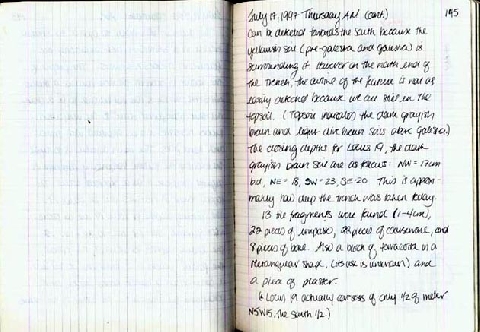 July 17, 1997 - Thursday AM (cont) 195
can be detected towards the south because the
yellowish soil (pre-galestra and galestra) is
surrounding it. However on the north end of
the trench, the outline of the feature is not as
easily detected because we are still in the
topsoil. (Topsoil indicates the dark grayish
brown and light olive brown soils above galestra)
The closing depths for Locus 19, the dark
grayish brown soil are as follows: NW = 17cm
bd, NE = 18, SW = 23, SE = 20. This is approx-
imately how deep the trench was taken today.
13 tile fragments were found (1-4cm),
27 pieces of impasto, pieces of coarseware, and
8 pieces of bone. Also a piece of terracotta in a
rectangular shape. (its use is unknown) and
a piece of plaster.
Locus 19 actually consists of only 1/2 of meter
N5W15, the south 1/2)